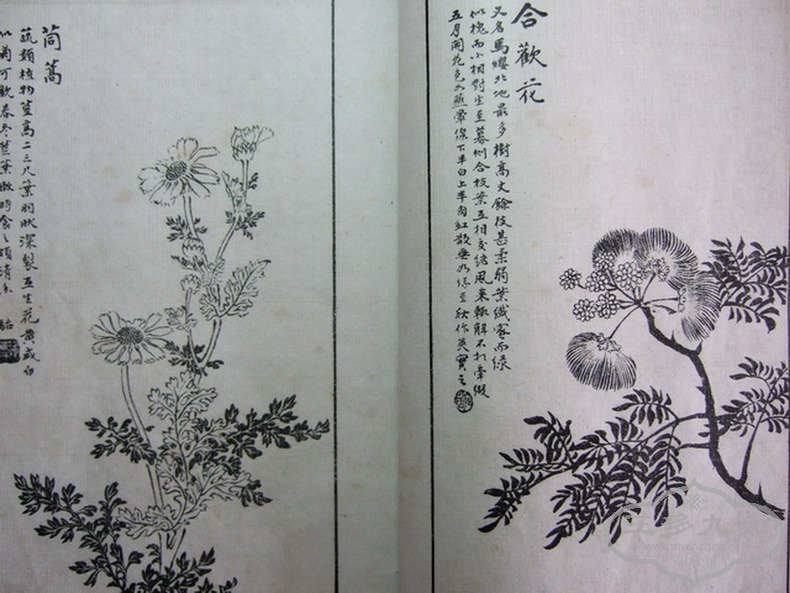 合歡花
又名馬纓北地最多樹高丈餘枝甚柔弱葉纖密而綠
似槐而小相對生至暮則合枝葉互相交結風來輒解不相牽綴
五月開花色如蘸暈線下半白上半肉紅散垂如絲至秋作莢實
茼蒿
蔬類植物莖高二三尺葉羽狀深裂互生花黃或白
似菊可歡春冬莖葉嫩時食之頗清